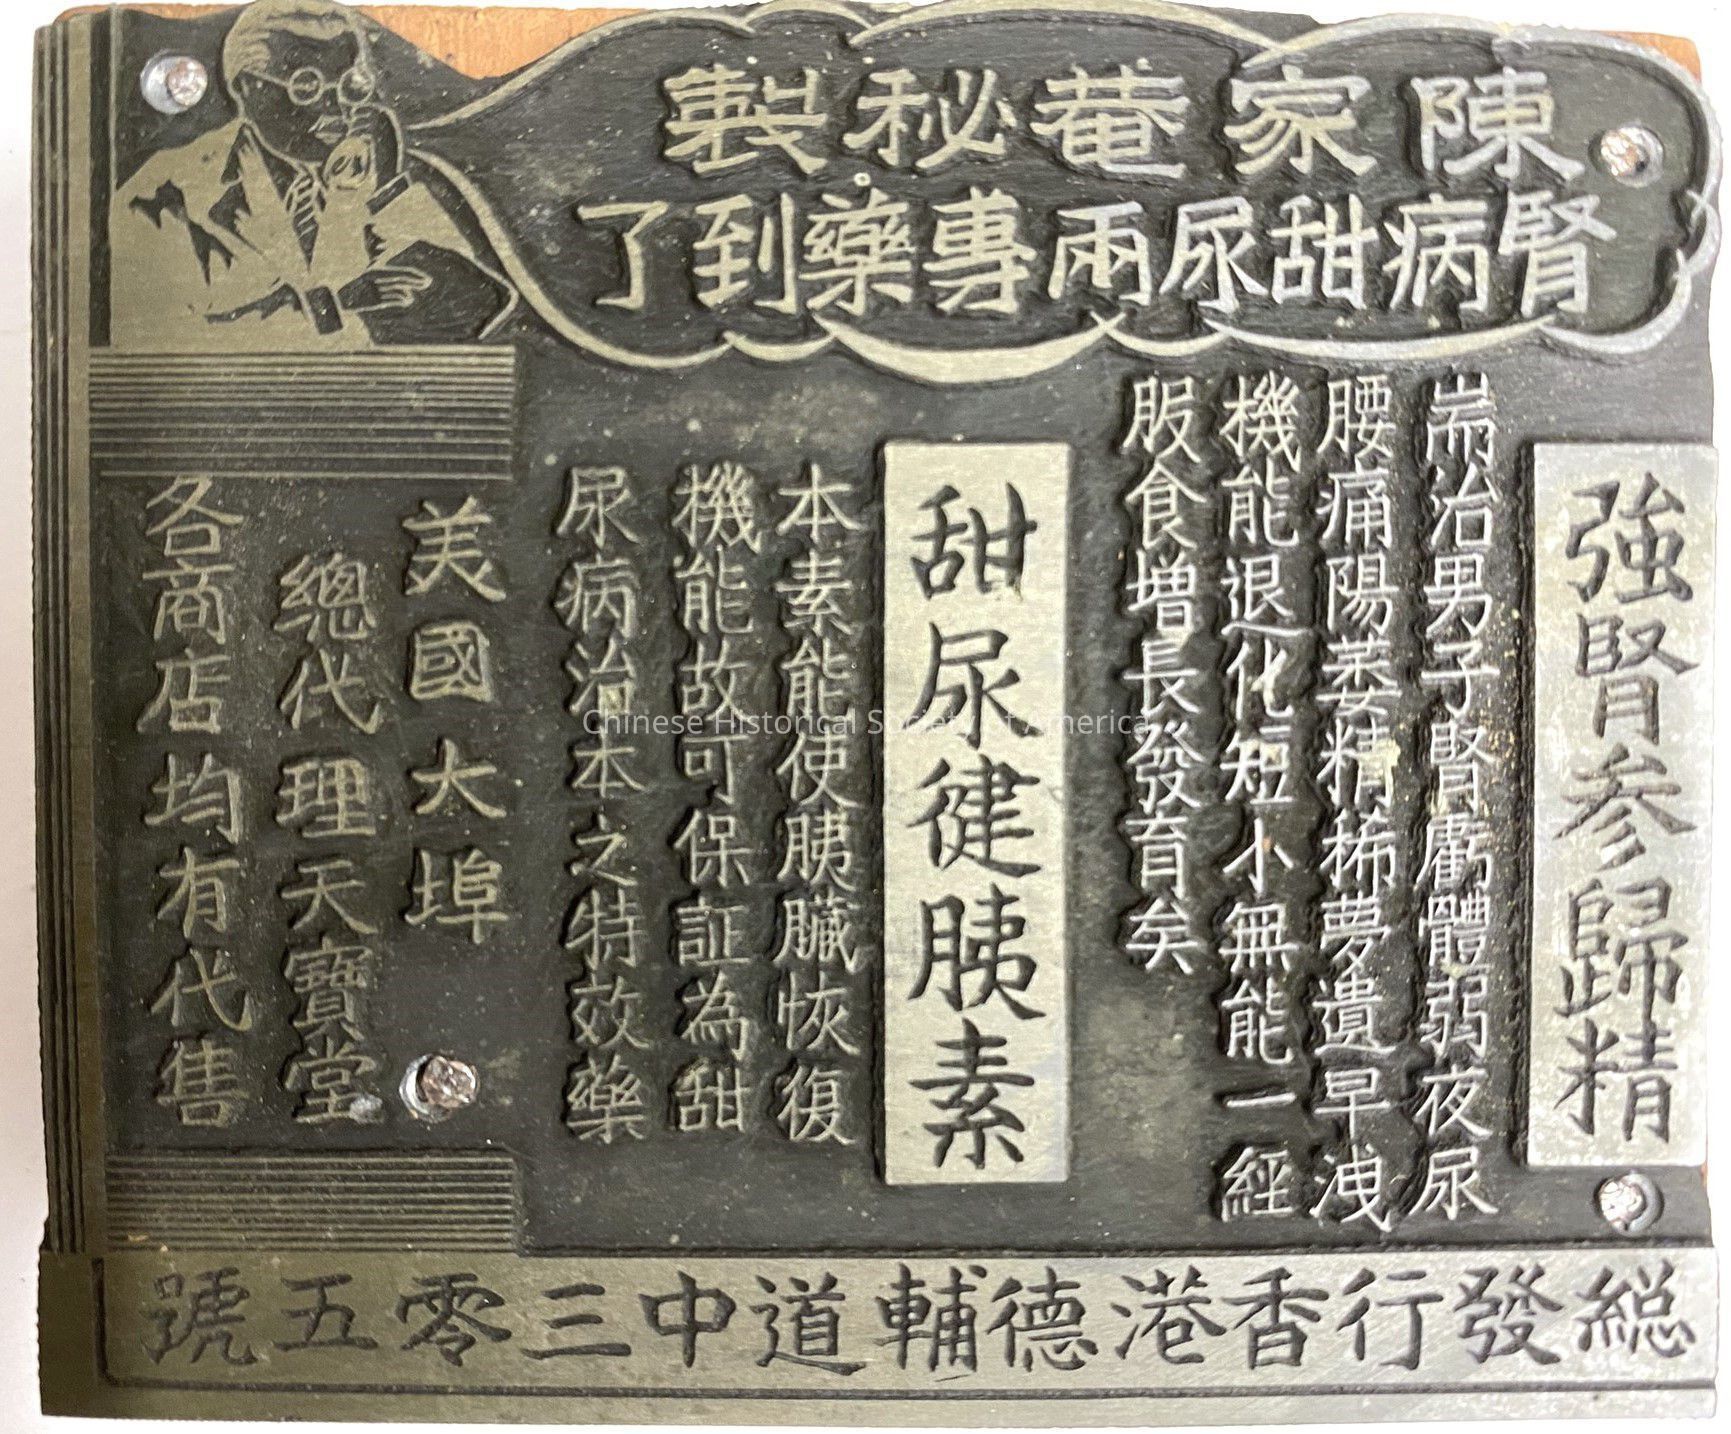 陳家菴秘製
腎病甜尿兩專藥到了
強腎参歸精
耑治男子腎虧體弱夜尿
腰痛陽萎精稀夢遺早洩
機能退化短小無能一經
服食增長發育矣
甜尿健胰素
本素能使胰臟恢復
機能故可保証為甜
尿病治本之特效藥
美國大埠
總代理天寶堂
各商店均有代售
総發行香港德輔道中三零五號
Chinese Historical Society of America